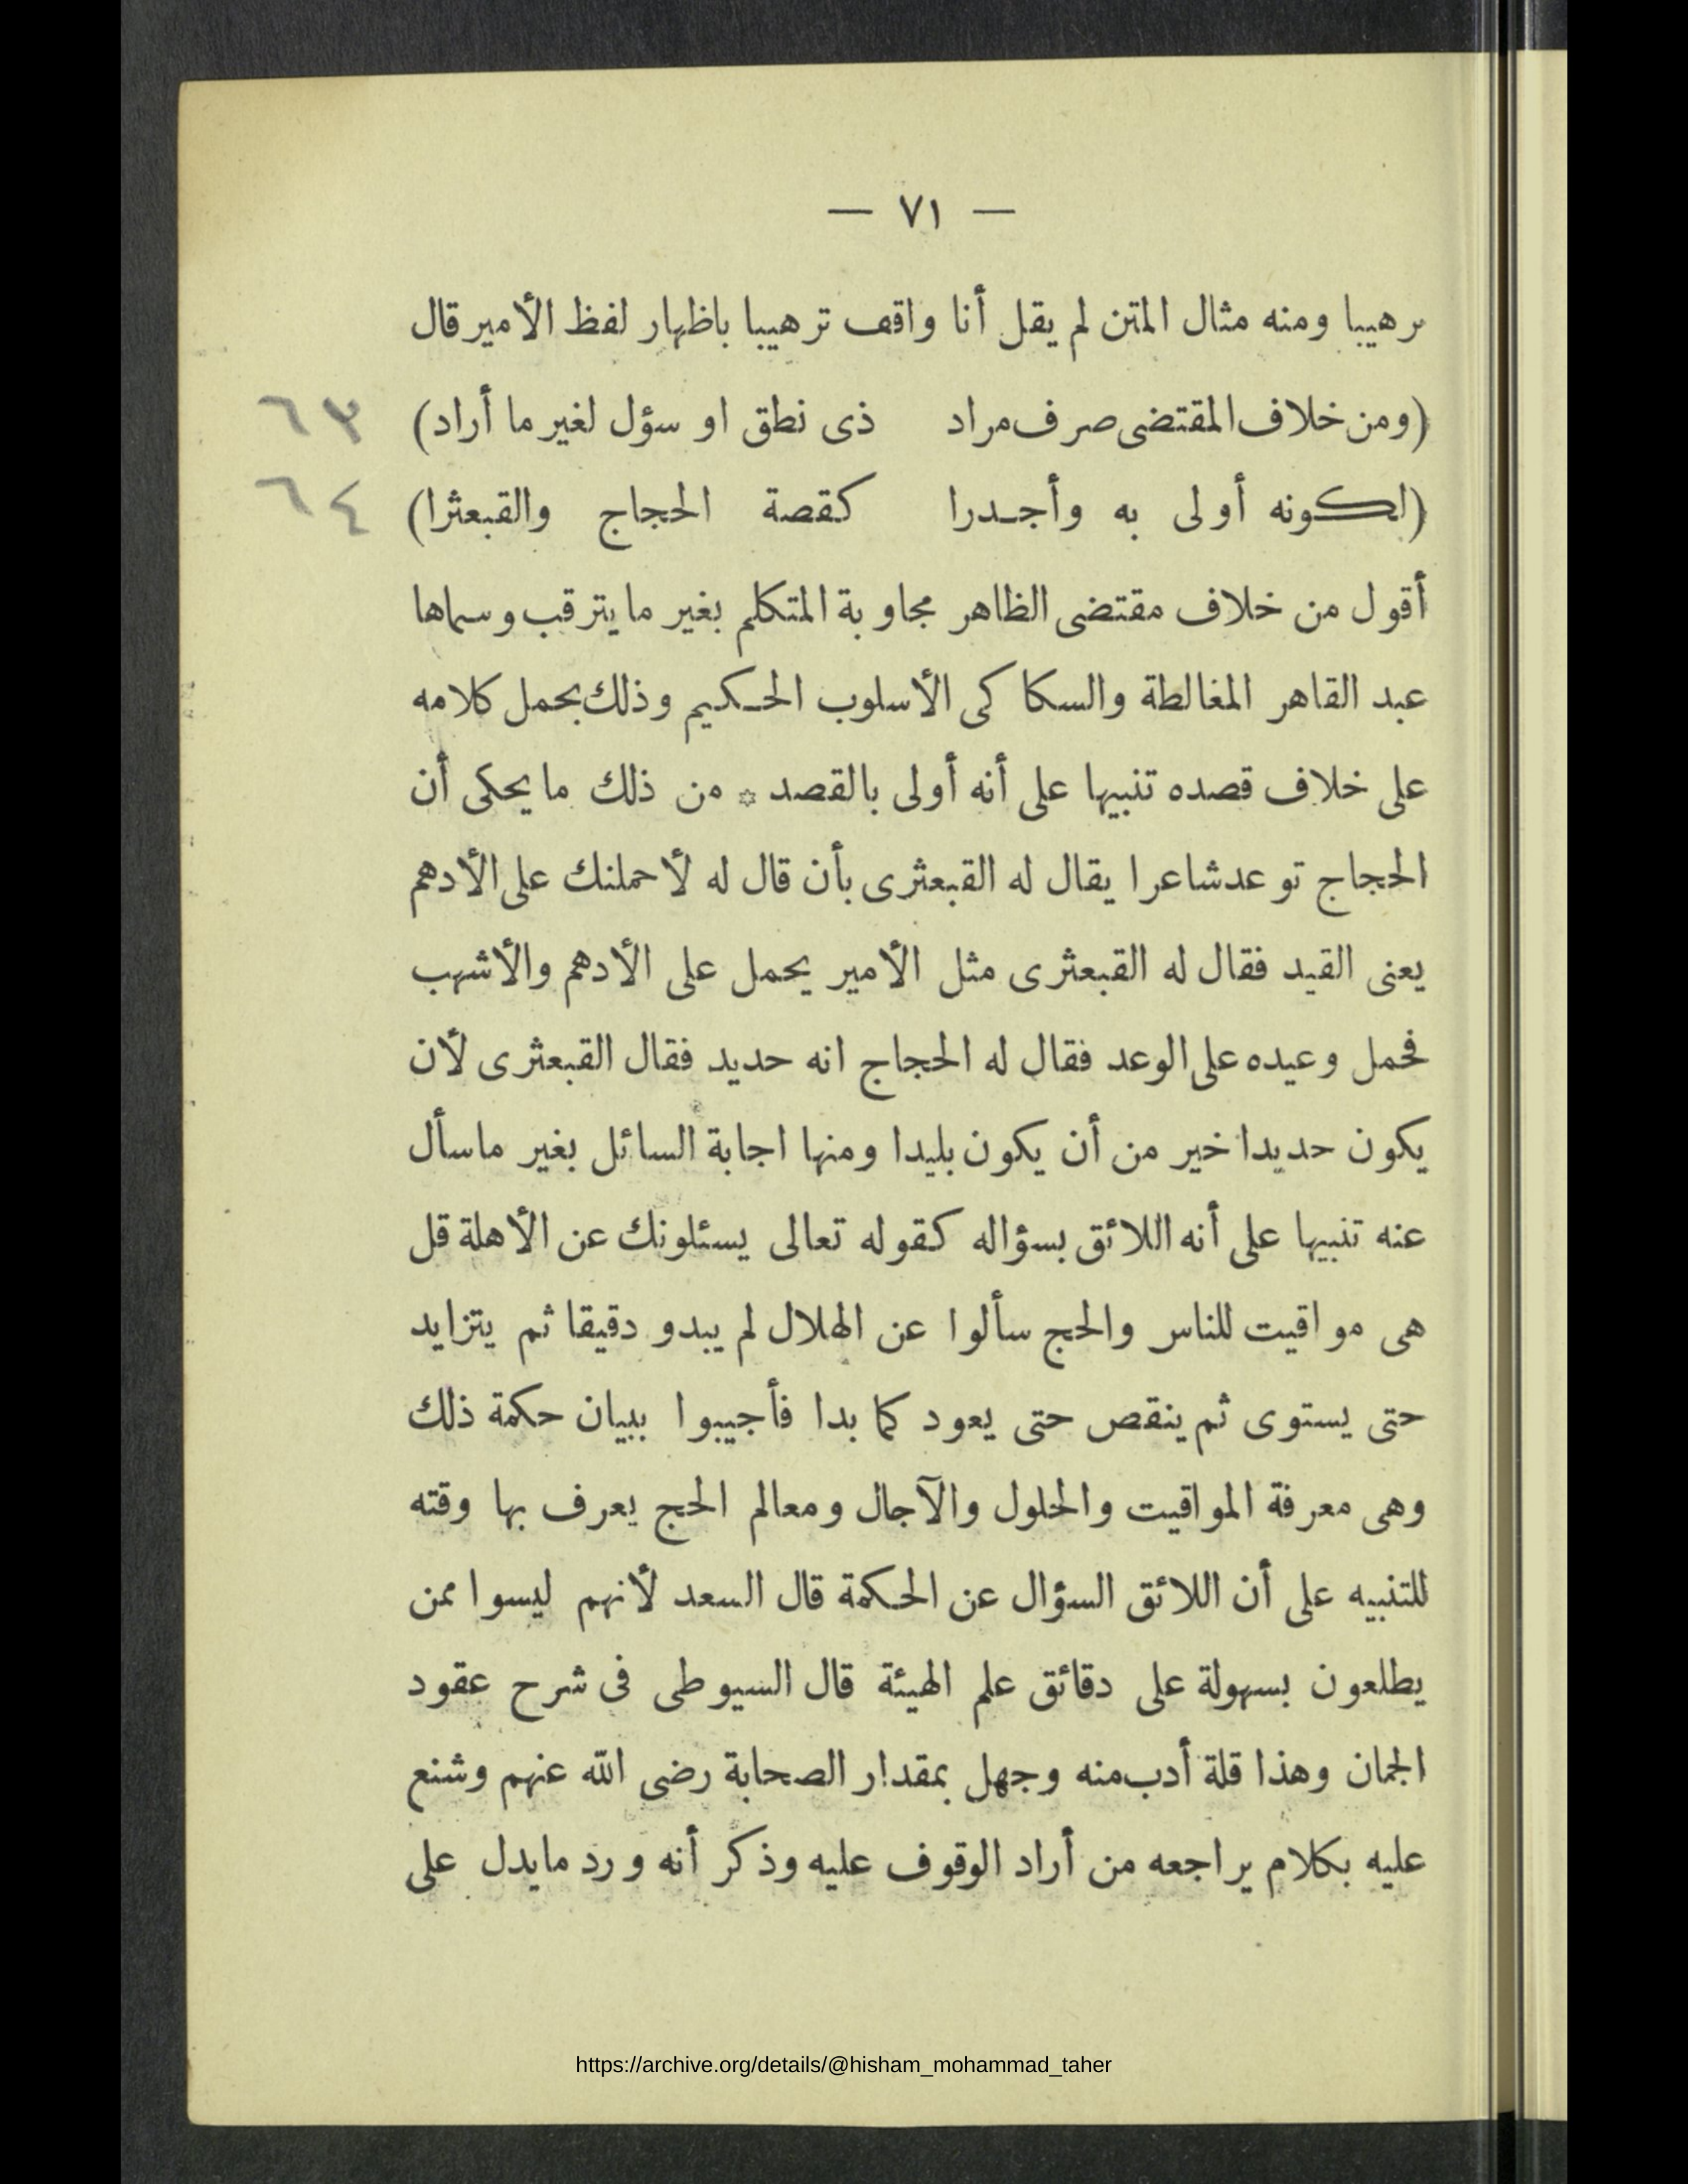 — ٧١ —
ترهيبا ومنه مثال المتن لم يقل أنا واقف ترهيبا باظهار لفظ الأمير قال
(ومن خلاف المقتضى صرف مراد ذى نطق او سؤل لغير ما أراد) ٦٣
(لكونه أولى به وأجدرا كقصة الحجاج والقبعثرا) ٦٤
أقول من خلاف مقتضى الظاهر مجاوبة المتكلم بغير ما يترقب وسماها
عبد القاهر المغالطة والسكاكى الأسلوب الحكيم وذلك بحمل كلامه
على خلاف قصده تنبيها على أنه أولى بالقصد * من ذلك ما يحكى أن
الحجاج توعد شاعرا يقال له القبعثرى بأن قال له لأحملنك على الأدهم
يعنى القيد فقال له القبعثرى مثل الأمير يحمل على الأدهم والأشهب
فحمل وعيده على الوعد فقال له الحجاج انه حديد فقال القبعثرى لأن
يكون حديدا خير من أن يكون بليدا ومنها اجابة السائل بغير ماسأل
عنه تنبيها على أنه اللائق بسؤاله كقوله تعالى يسئلونك عن الأهلة قل
هى مواقيت للناس والحج سألوا عن الهلال لم يبدو دقيقا ثم يتزايد
حتى يستوى ثم ينقص حتى يعود كما بدا فأجيبوا ببيان حكمة ذلك
وهى معرفة المواقيت والحلول والآجال ومعالم الحج يعرف بها وقته
للتنبيه على أن اللائق السؤال عن الحكمة قال السعد لأنهم ليسوا ممن
يطلعون بسهولة على دقائق علم الهيئة قال السيوطى فى شرح عقود
الجمان وهذا قلة أدب منه وجهل بمقدار الصحابة رضى الله عنهم وشنع
عليه بكلام يراجعه من أراد الوقوف عليه وذكر أنه ورد مايدل على
https://archive.org/details/@hisham_mohammad_taher